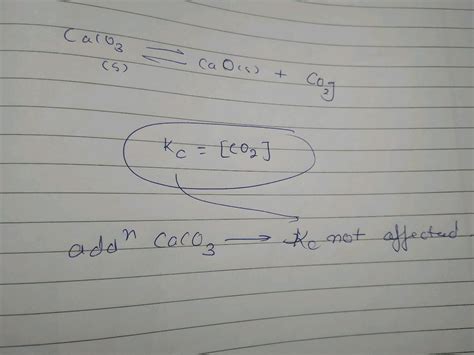 CaCO3 ⇌ CaO(s) + CO2g
(s)
Kc = [CO2]
addn CaCO3 → Kc not affected